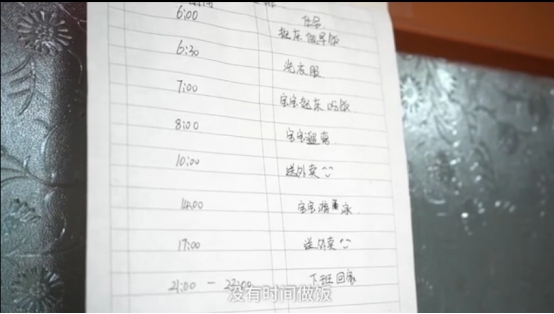 6:00
起床做早饭
6:30 洗衣服
7:00 宝宝起床吃饭
8:00 宝宝
10:00 送外卖
14:00 宝宝游泳
17:00 送外卖
21:00 - 22:00 下班回家
没有时间做饭